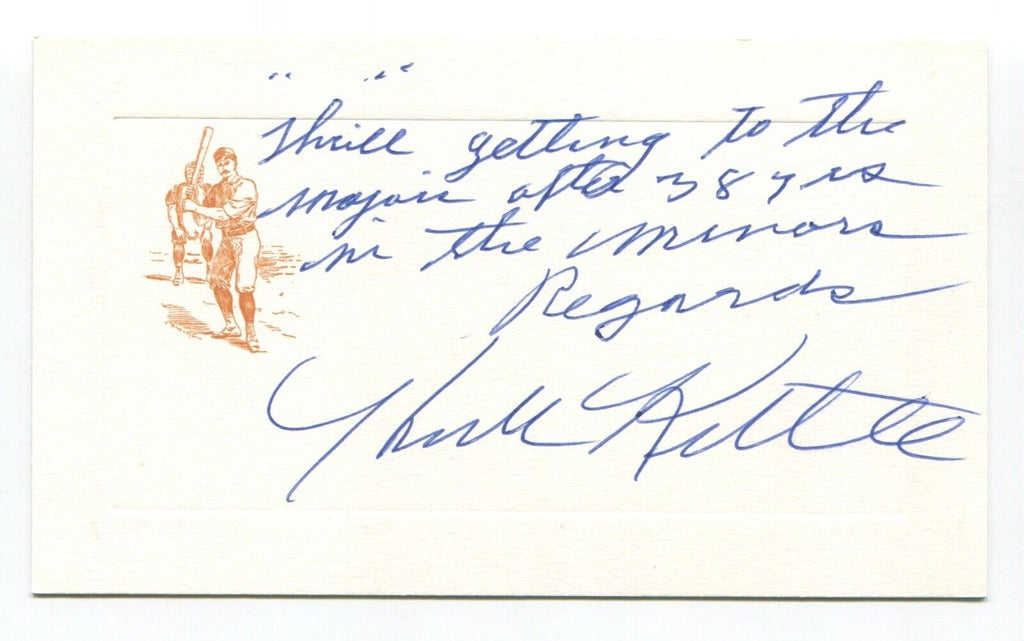 " "
Thrill getting to the
Majors after 38 yrs
in the minors
Regards
Hub Kittle